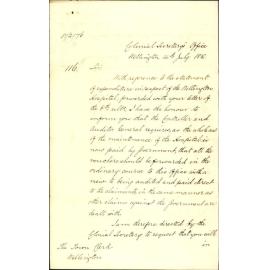 Colonial Secretary's Office
Wellington July
116. Sir
With reference to the statement
of expenditure in respect of the Wellington
Hospital, forwarded with your letter of
the 8th ulto, I have the honour to
inform you that the Controller and
Auditor General requires, as the whole cost
of the maintenance of the Hospital is
now paid by Government, that all the
vouchers should be forwarded in the
ordinary course to this Office with a
view to being audited and paid direct
to the claimants, in the same manner as
other claims against the Government are
dealt with.
I am therefore directed by the
Colonial Secretary to request that you will
in
The Town Clerk
Wellington